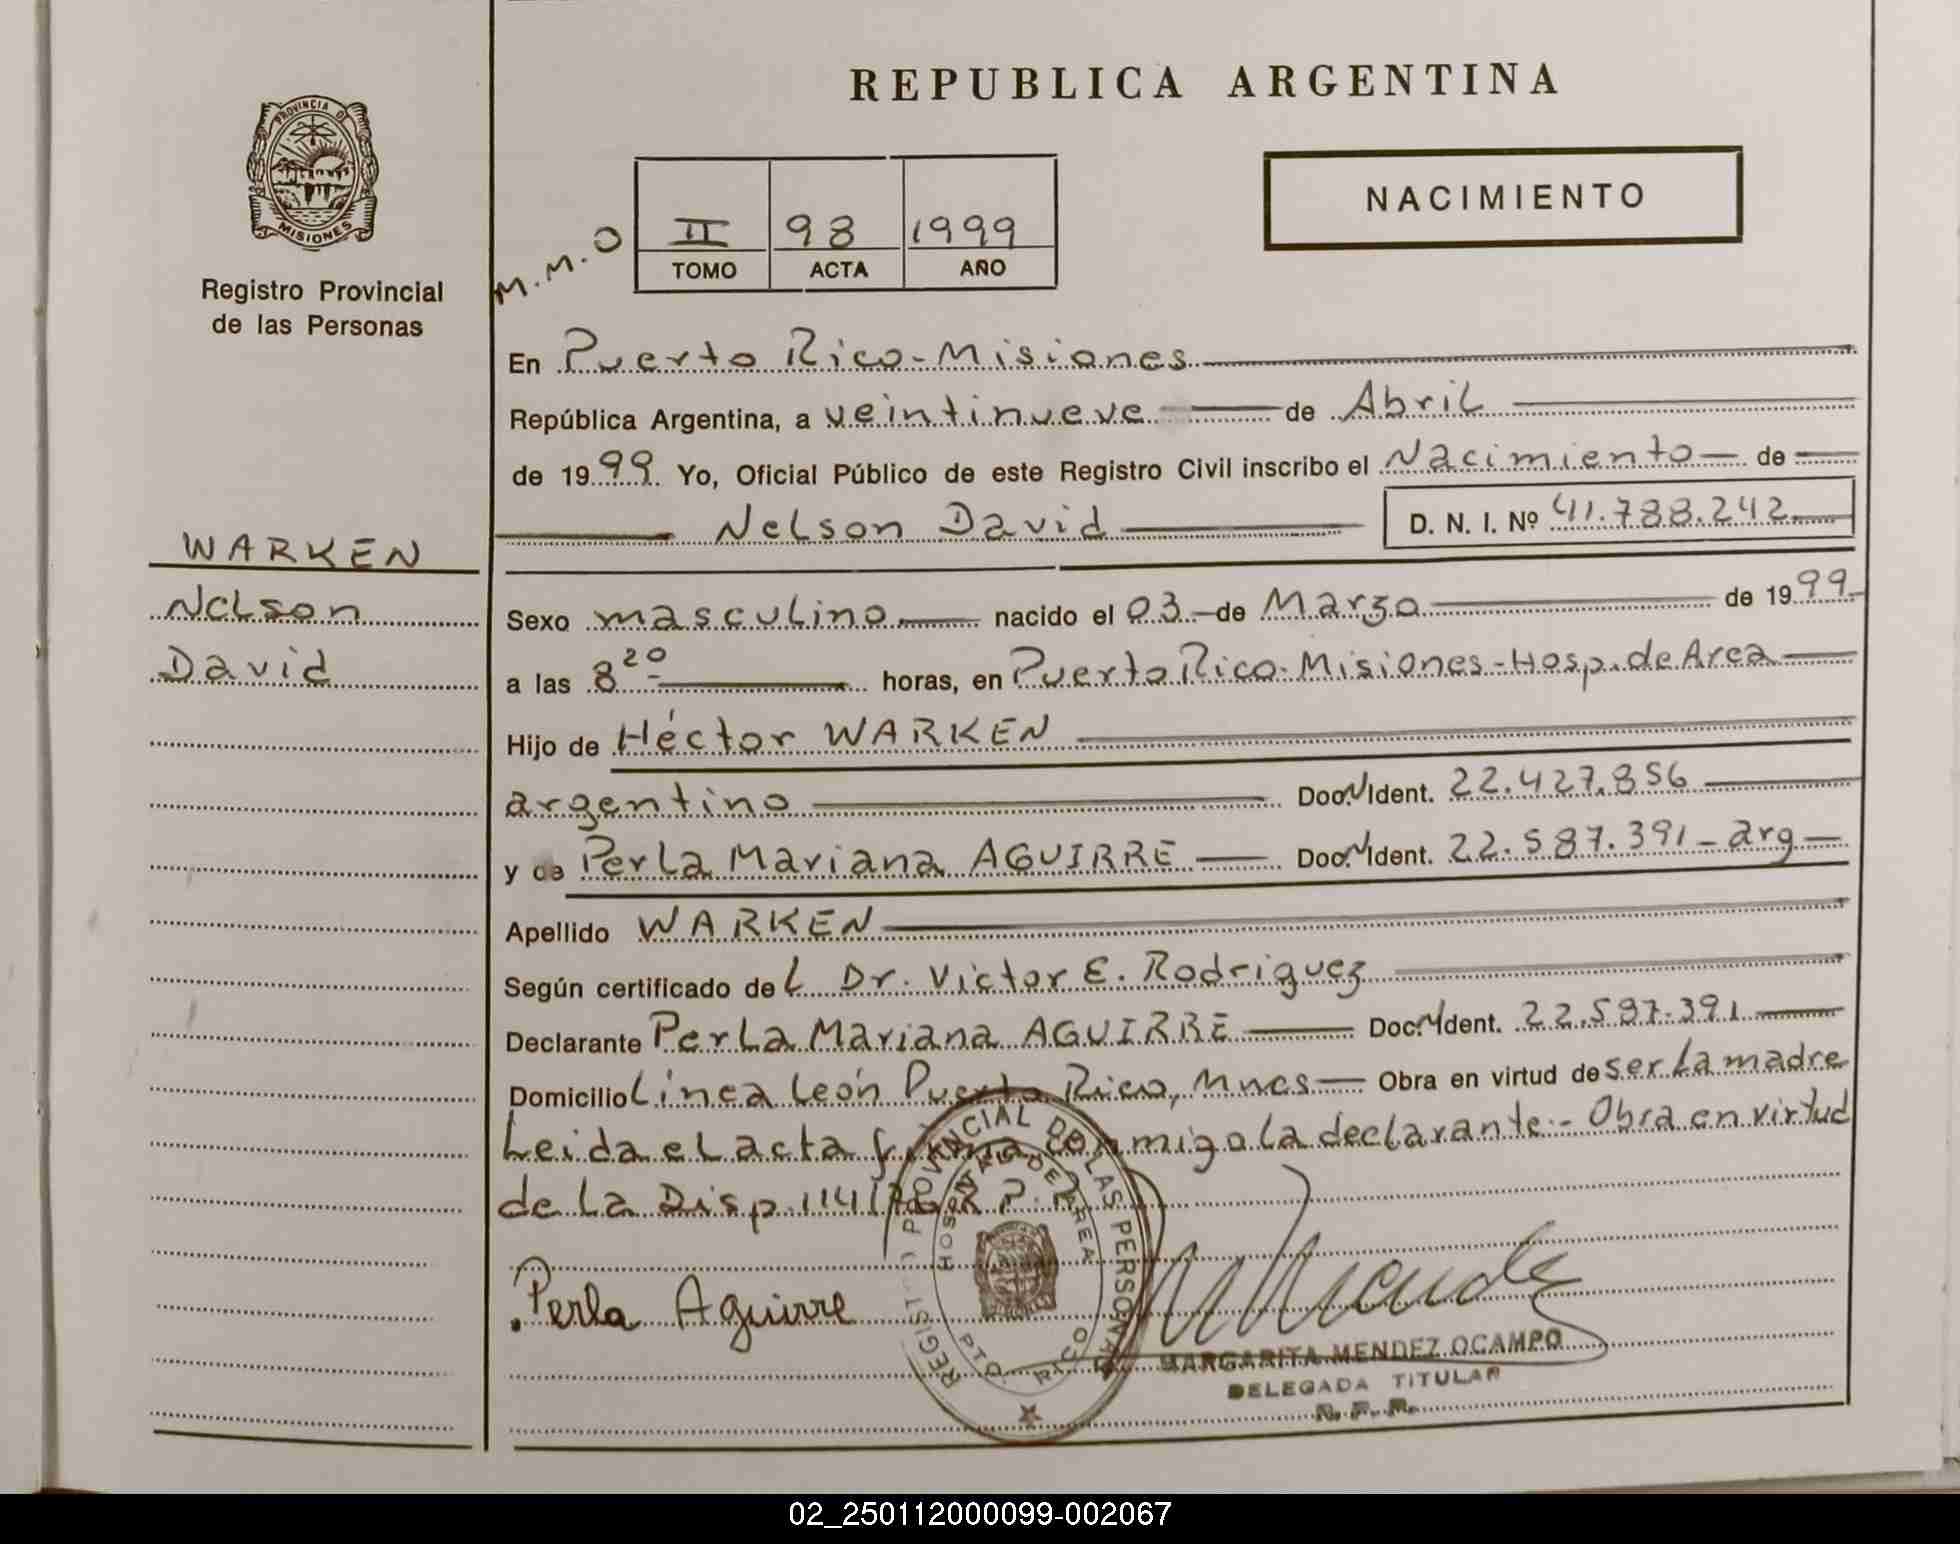 REPUBLICA ARGENTINA
PROVINCIA DE
MISIONES
Registro Provincial
de las Personas
M.M.O
II 98 1999
TOMO ACTA AÑO
NACIMIENTO
En Puerto Rico-Misiones
República Argentina, a veintinueve de Abril
de 1999 Yo, Oficial Público de este Registro Civil inscribo el Nacimiento de
Nelson David D. N. I. Nº 41.788.242
WARKEN
Nelson
David
Sexo masculino nacido el 03 de Marzo de 1999
a las 8 20 horas, en Puerto Rico-Misiones-Hosp. de Area
Hijo de Héctor WARKEN
argentino Doc. N Ident. 22.427.856
y de Perla Mariana AGUIRRE Doc. N Ident. 22.587.391 - arg
Apellido WARKEN
Según certificado del Dr. Victor E. Rodriguez
Declarante Perla Mariana AGUIRRE Doc. N Ident. 22.587.391
Domicilio Línea León Puerto Rico, Mnes Obra en virtud de ser la madre
Leida el acta firma conmigo la declarante.- Obra en virtud
de la Disp. 114/ R.P.P.
Perla Aguirre
REGISTRO PROVINCIAL DE LAS PERSONAS
HOSPITAL DE AREA
PTO. RICO
MARGARITA MENDEZ OCAMPO
DELEGADA TITULAR
R. P. P.
02_250112000099-002067